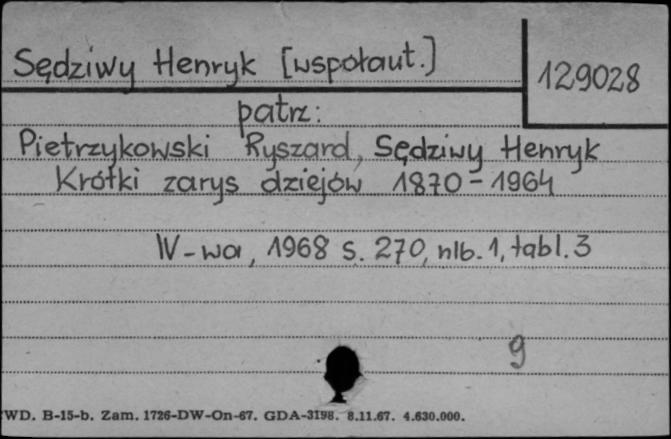 Sędziwy Henryk [wspołaut.]
129028
patrz:
Pietrzykowski Ryszard, Sędziwy Henryk
Krótki zarys dziejów 1870-1964
W-wa, 1968 s. 270, nlb. 1, tabl. 3
9
WD. B-15-b. Zam. 1726-DW-On-67. GDA-3198. 8.11.67. 4.630.000.